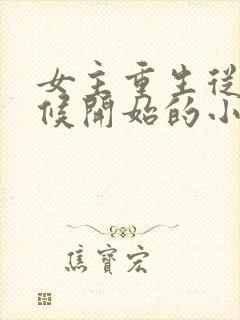 女主重生從
候開始的小
焦寶宏